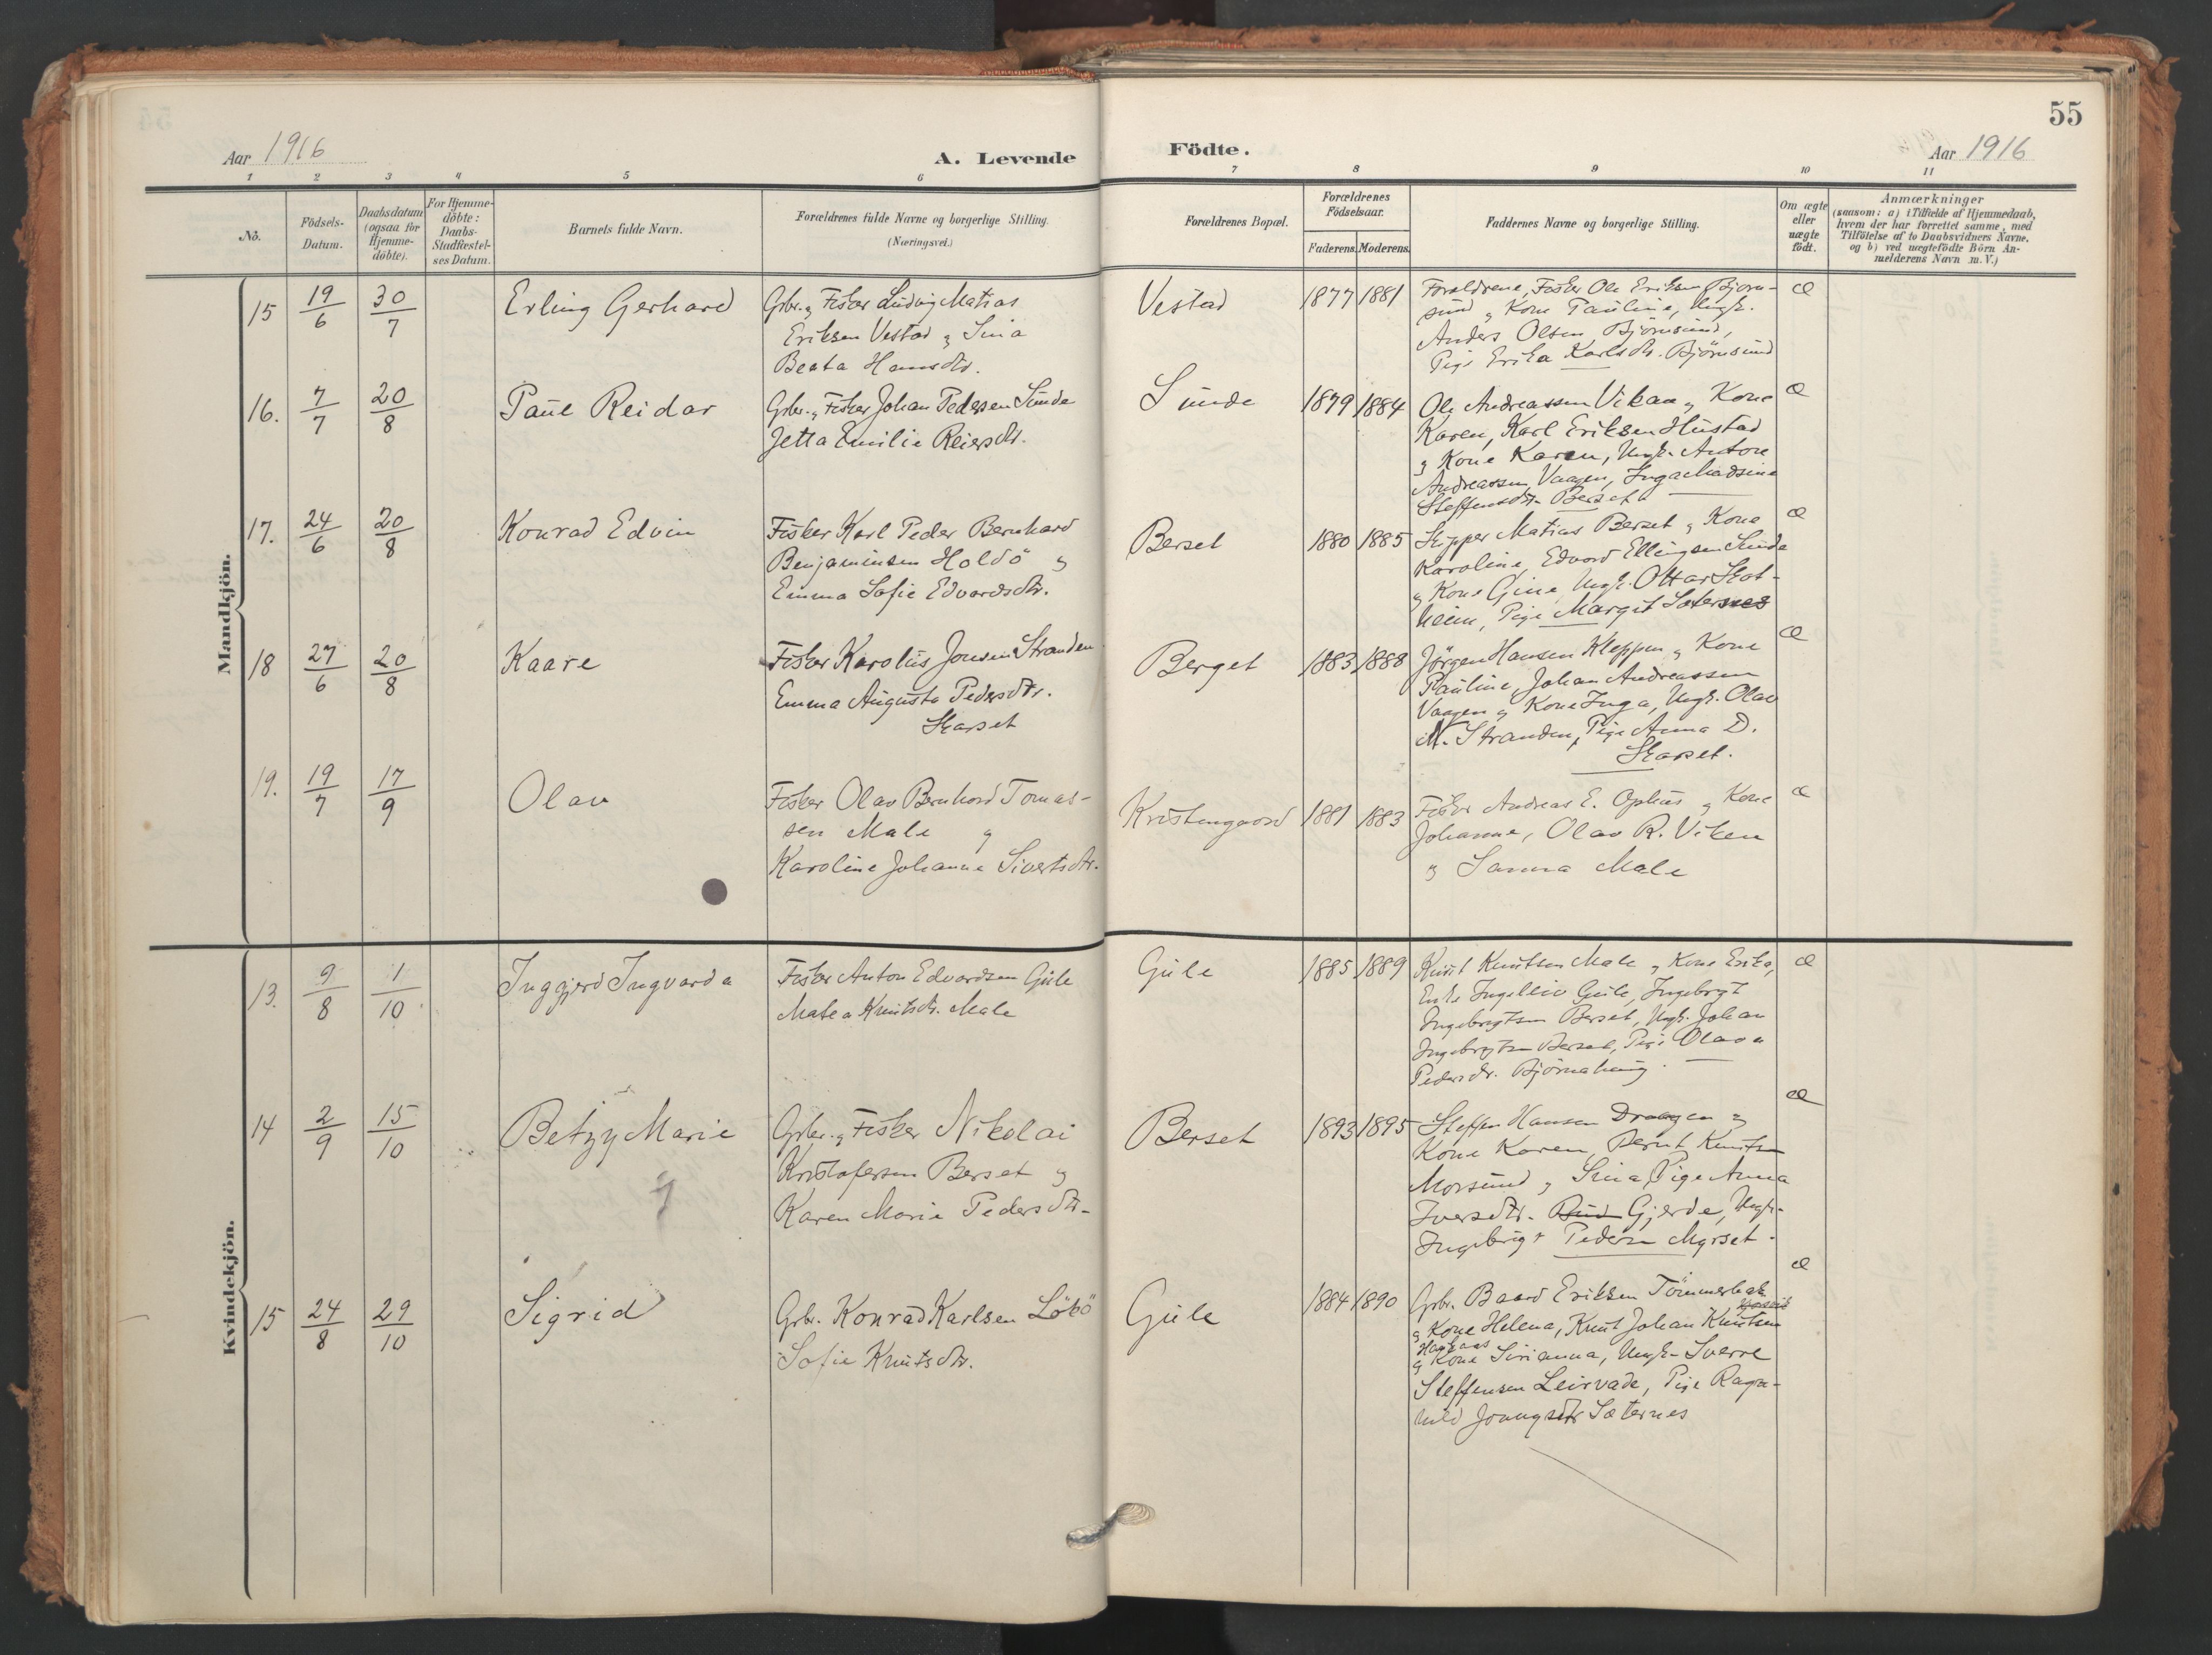 55
Aar 1916
A. Levende
Födte.
Aar 1916
1 2 3 4 5 6 7 8 9 10 11
No.
Födsels-Datum.
Daabsdatum (ogsaa for Hjemme-döbte).
For Hjemme-döbte: Daabs-Stadfæstel-ses Datum.
Barnets fulde Navn.
Forældrenes fulde Navne og borgerlige Stilling.
(Næringsvei.)
Forældrenes Bopæl.
Forældrenes Födselsaar.
Faderens. Moderens.
Faddernes Navne og borgerlige Stilling.
Om ægte eller uægte födt.
Anmærkninger
(saasom: a) i Tilfælde af Hjemmedaab,
hvem der har forrettet samme, med
Tilföielse af to Daabsvidners Navne.
og b) ved uægtefödte Börn An-
melderens Navn m. V.)
Mandkjön.
15 19/6 30/7 Erling Gerhard
Gbr. og Fisker Ludvig Matias
Eriksen Vestad og Sina
Beata Hansdtr.
Vestad 1877 1881
Forældrene, Fisker Ole Eriksen Bjorn-
sund og Kone Pauline, Ungk.
Anders Olsen Björnsund,
Pige Erika Karlsdtr. Björnsund
æ
16. 7/7 20/8 Paul Reidar
Gbr. og Fisker Johan Pedersen Sunde
Jetta Emilie Reiersdtr.
Sunde 1879 1884
Ole Andreassen Vikan og Kone
Karen, Karl Eriksen Hustad
og Kone Karen, Ungk. Anton
Andreassen Vaagen, Inga Madsine
Steffensdtr. Berset
æ
17. 24/6 20/8 Konrad Edvin
Fisker Karl Peder Bernhard
Benjaminsen Holdö og
Emma Sofie Edvardsdtr.
Berset 1880 1885
Skipper Matias Berset og Kone
Karoline, Edvard Ellingsen Sunde
og Kone Gine, Ungk. Ottar Skot-
heim, Pige Margit Sæternes
æ
18 27/6 20/8 Kaare
Fisker Karolus Jonsen Stranden
Emma Augusta Pedersdtr.
Skarset
Berget 1883 1888
Jörgen Hansen Kleppen og Kone
Pauline, Johan Andreassen
Vaagen og Kone Inga, Ungk. Olav
M. Stranden, Pige Anna D.
Skarset.
æ
19. 19/7 17/9 Olav
Fisker Olav Bernhard Tomas-
sen Male og
Karoline Johanna Sivertsdtr.
Kristengaard 1881 1883
Fisker Andreas E. Ophus og Kone
Johanna, Olav R. Viken
og Sanna Male
æ
Kvindekjön.
13. 9/8 1/10 Inggjerd Ingvarda
Fisker Anton Edvardsen Gule
Matea Knutsdtr. Male
Gule 1885 1889
Knut Knutsen Male og Kone Erika,
Enke Ingelliv Gule, Ingebrigt
Ingebrigtsen Berset, Ungk. Johan
Ingebrigtsen Berset, Pige Olava
Pedersdtr. Björnahaug.
æ
14 2/9 15/10 Betzy Marie
Gbr. og Fisker Nikolai
Kristofersen Berset og
Karen Marie Pedersdtr.
Berset 1893 1895
Steffen Hansen Draagen og
Kone Karen, Bernt Knutsen
Morsund og Sina, Pige Anna
Iversdtr. Bud Gjerde, Ungk.
Ingebrigt Pedersen Myrset.
æ
15 24/8 29/10 Sigrid
Gbr. Konrad Karlsen Lökö
Sofie Knutsdtr.
Gule 1884 1890
Gbr. Baard Eriksen Tömmerbak
og Kone Helena, Knut Johan Knutsen
Haukaas
og Kone Sirianna, Ungk. Sverre
Steffensen Leirvade, Pige Ragn-
hild Jonnysdtr Sæternes
æ